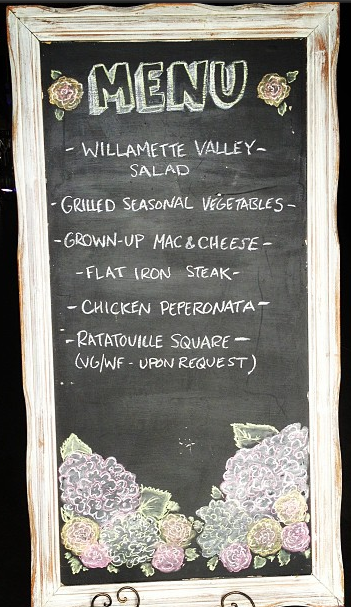 MENU
- WILLAMETTE VALLEY -
SALAD
- GRILLED SEASONAL VEGETABLES -
- GROWN-UP MAC & CHEESE -
- FLAT IRON STEAK -
- CHICKEN PEPERONATA -
- RATATOUILLE SQUARE -
(VG/WF - UPON REQUEST)